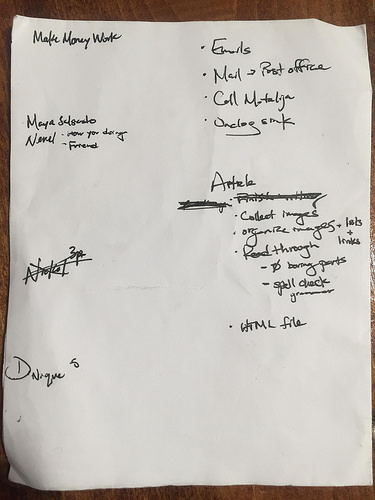 Make Money Work
• Emails
• Mail → Post office
• Call Matalija
• Unclog sink
Maya Salgado
• How you doing
- Friend
Article
• Finish
• Collect images
• organize images + lists + links
• Read through
- Ø boring parts
- spell check
grammar
• HTML file
3pm